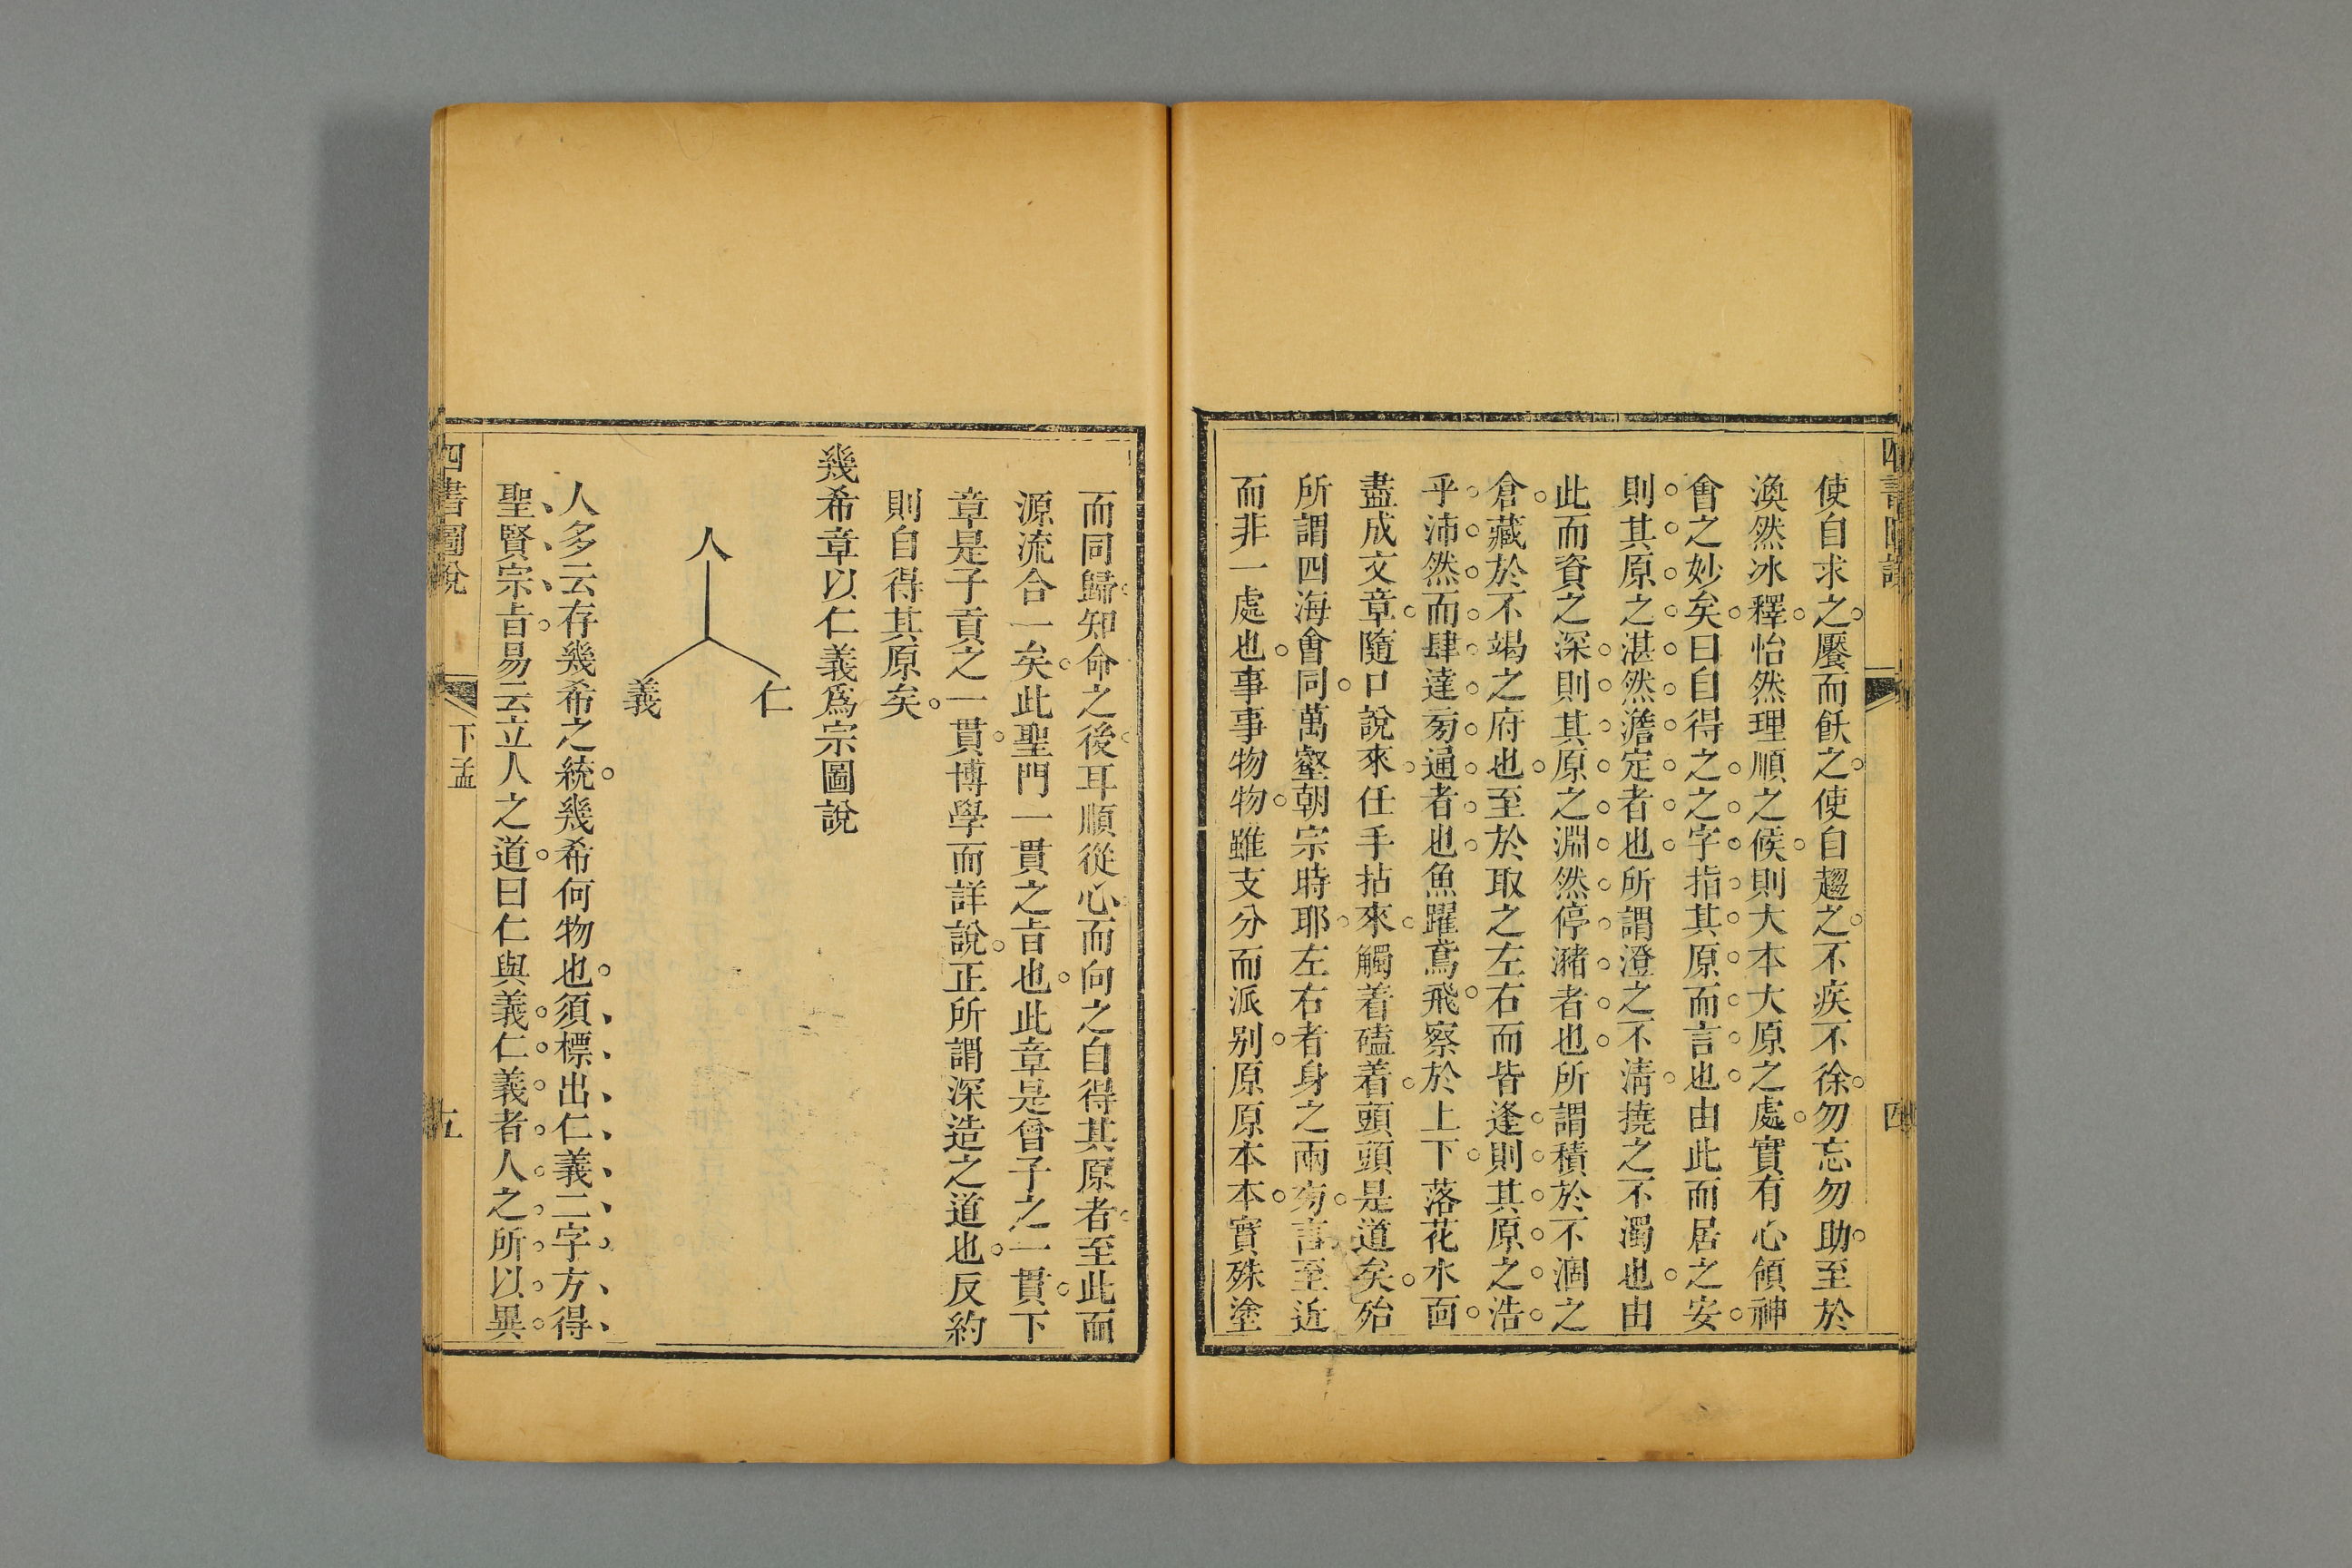 四書圖說
四
使自求之饜而飫之使自趨之不疾不徐勿忘勿助至於
渙然冰釋怡然理順之候則大本大原之處實有心領神
會之妙矣曰自得之之字指其原而言也由此而居之安
則其原之湛然澹定者也所謂澄之不淸撓之不濁也由
此而資之深則其原之淵然停瀦者也所謂積於不涸之
倉藏於不竭之府也至於取之左右而皆逢則其原之浩
乎沛然而肆達㫄通者也魚躍鳶飛察於上下落花水面
盡成文章隨口說來任手拈來觸着磕着頭頭是道矣殆
所謂四海會同萬壑朝宗時耶左右者身之兩㫄言至近
而非一處也事事物物雖支分而派别原原本本實殊塗
而同歸知命之後耳順從心而向之自得其原者至此而
源流合一矣此聖門一貫之㫖也此章是曾子之一貫下
章是子貢之一貫博學而詳說正所謂深造之道也反約
則自得其原矣
幾希章以仁義爲宗圖說
人
仁
義
人多云存幾希之統幾希何物也須標出仁義二字方得
聖賢宗㫖易云立人之道曰仁與義仁義者人之所以異
四書圖說
下孟
五